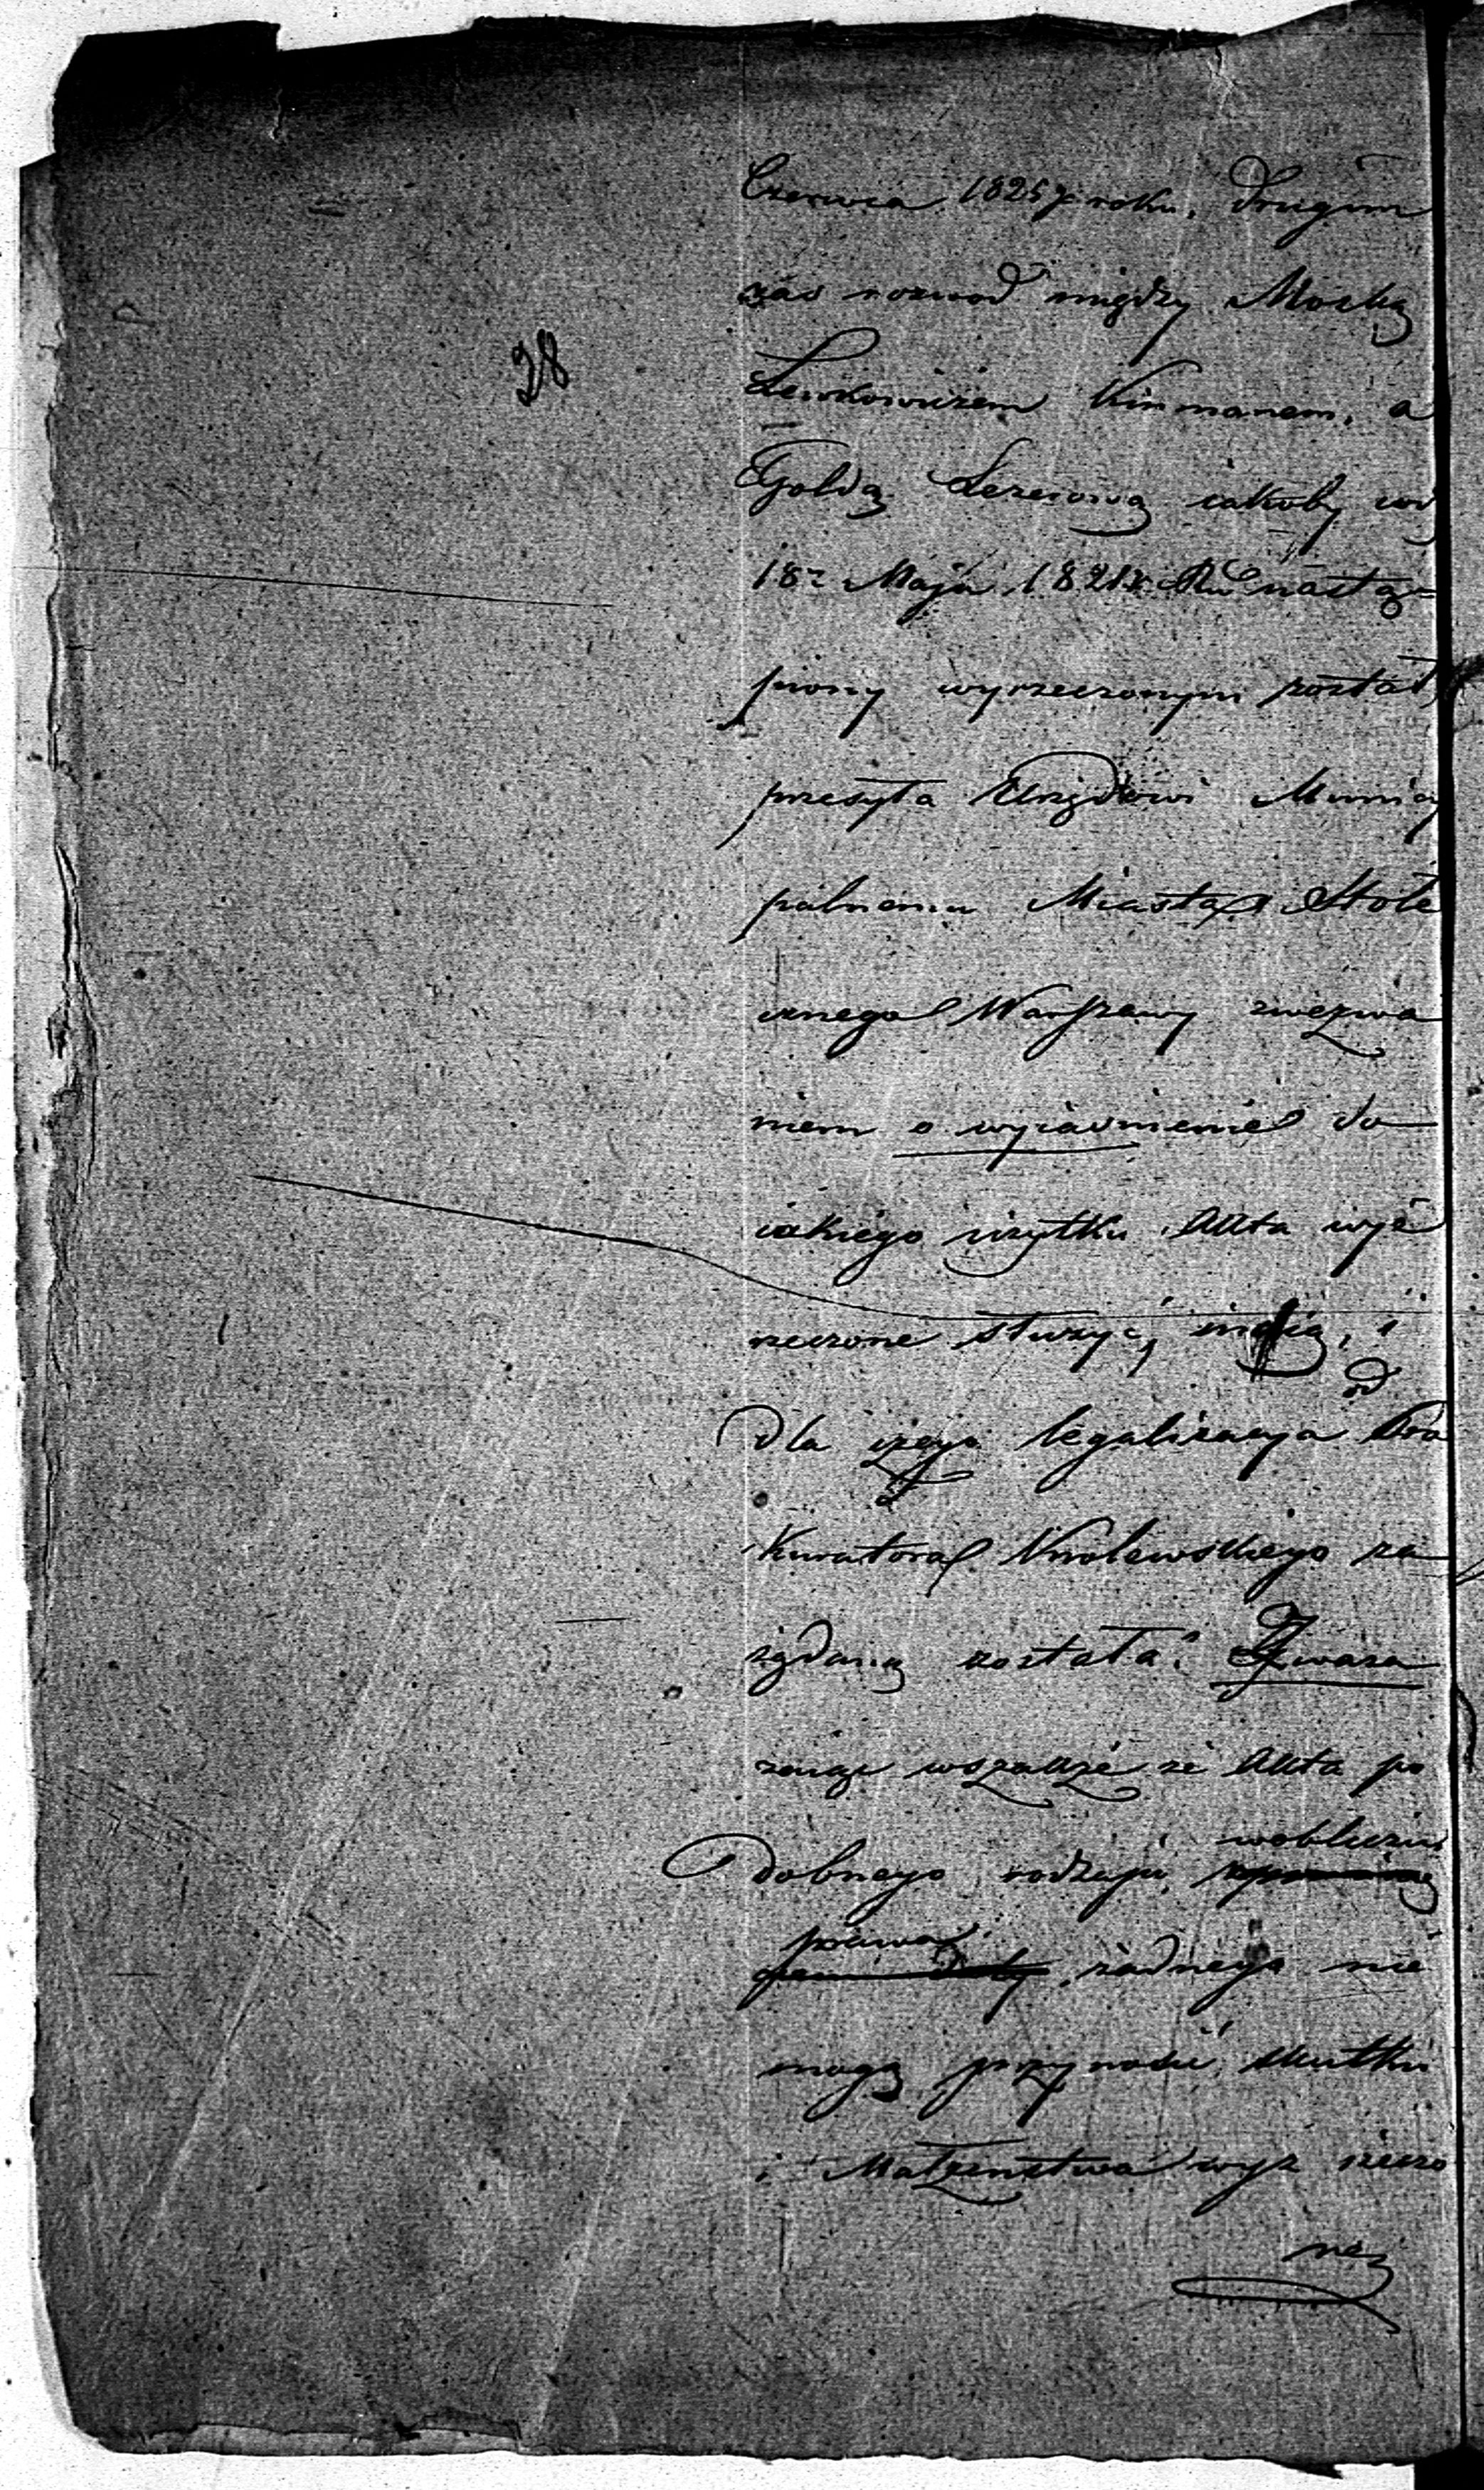 Czerwca 1825 z roku, drugim
zaś rozwod między Moszką
28
Lewkowiczem Kinmanem, a
Goldą Lezerową iakoby w d
18 Maja 1821 Ru nastą=
piony wyrzeczonym został,
przesyła Urzędowi Municy
palnemu Miasta Stołe
cznego Warszawy z wezwa
niem o wyiaśnienie do
iakiego użytku Akta wyż
rzeczone służyć maią, i
od
dla czego legalizacya Pro
kuratora Krolewskiego za
żądaną została? Zwara
żaiąc wszakże że Akta po
wobliczu
dobnego rodzaju
prawa
żadnego nie
mogą przynosić skutku
i Małżeństwa wyż rzeczo
ne